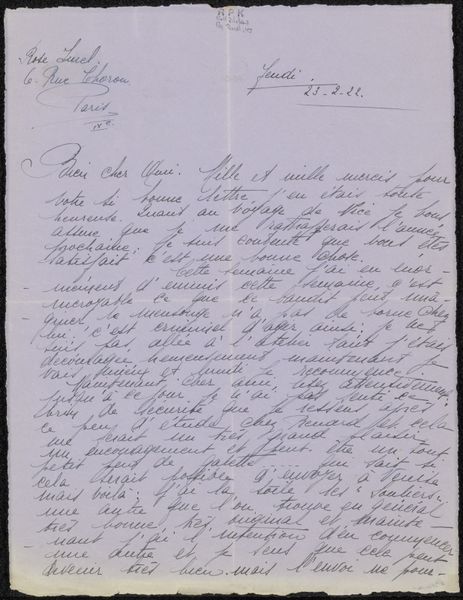 R P K
6. Rue Choron
Paris
IX e.
Jeudi
23-2-22.
Bien cher Ami. Mille et mille mercis pour
votre si bonne lettre j'en étais toute
heureuse. Quant au voyage de Nice je vous
assure que je me rattraperais l'année
prochaine; je suis contente que vous êtes
satisfait c'est une bonne chose.
Cette semaine j'ai eu énor-
mément d'ennuis cette semaine, c'est
incroyable ce que ce bandit peut
le mensonge n'a pas de borne chez
lui, c'est criminel d'agir ainsi; je ne
suis pas allée à l'atelier tant j'étais
découragée heureusement maintenant je
vais mieux et lundi je recommence.
Maintenant cher ami, lisez attentivement
jusqu'à ce jour je n'ai pas
de sécurité que je ressens après
ce peu d'étude chez Renard et cela
me serait un très grand plaisir
un encouragement et peut être un tout
petit peu de galette ...... on sait si
cela serait possible d'envoyer à Venise
mais voilà; j'ai la toile les "Souliers"
une autre que l'on trouve en général
très bonne, très original et mainte-
nant j'ai l'intention d'en commencer
une autre et je sens que cela peut
devenir très bien. mais l'envoi ne pour-